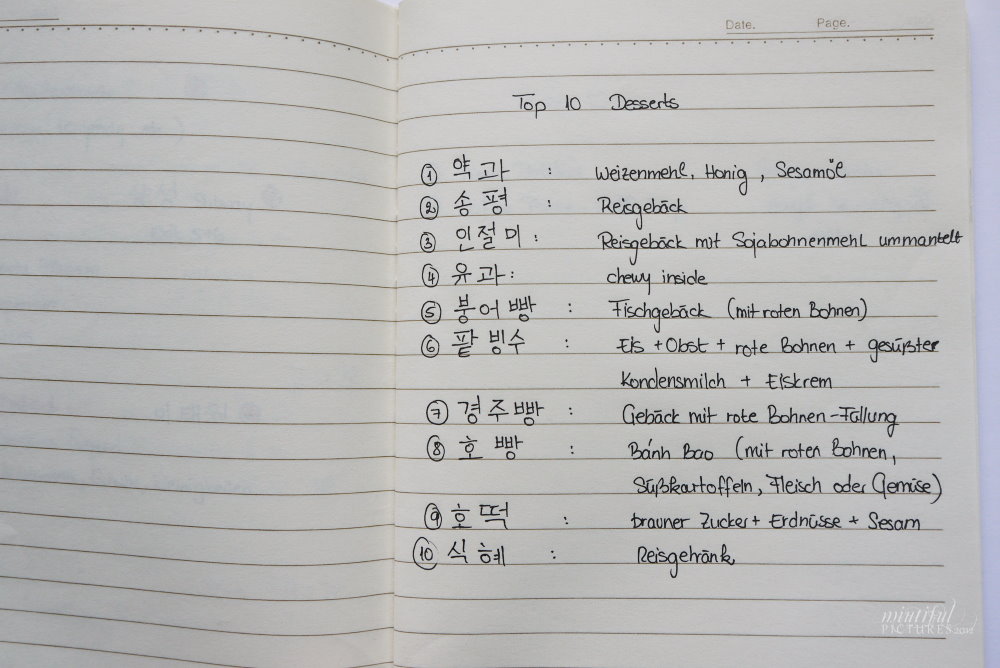 Date. Page.
Top 10 Desserts
① 약과 : Weizenmehl, Honig, Sesamöl
② 송평 : Reisgebäck
③ 인절미 : Reisgebäck mit Sojabohnenmehl ummantelt
④ 유과 : chewy inside
⑤ 붕어빵 : Fischgebäck (mit roten Bohnen)
⑥ 팥빙수 : Eis + Obst + rote Bohnen + gesüßter
Kondensmilch + Eiskrem
⑦ 경주빵 : Gebäck mit rote Bohnen-Füllung
⑧ 호빵 : Bánh Bao (mit roten Bohnen,
Süßkartoffeln, Fleisch oder Gemüse)
⑨ 호떡 : brauner Zucker + Erdnüsse + Sesam
⑩ 식혜 : Reisgetränk
miutiful
PICTURES